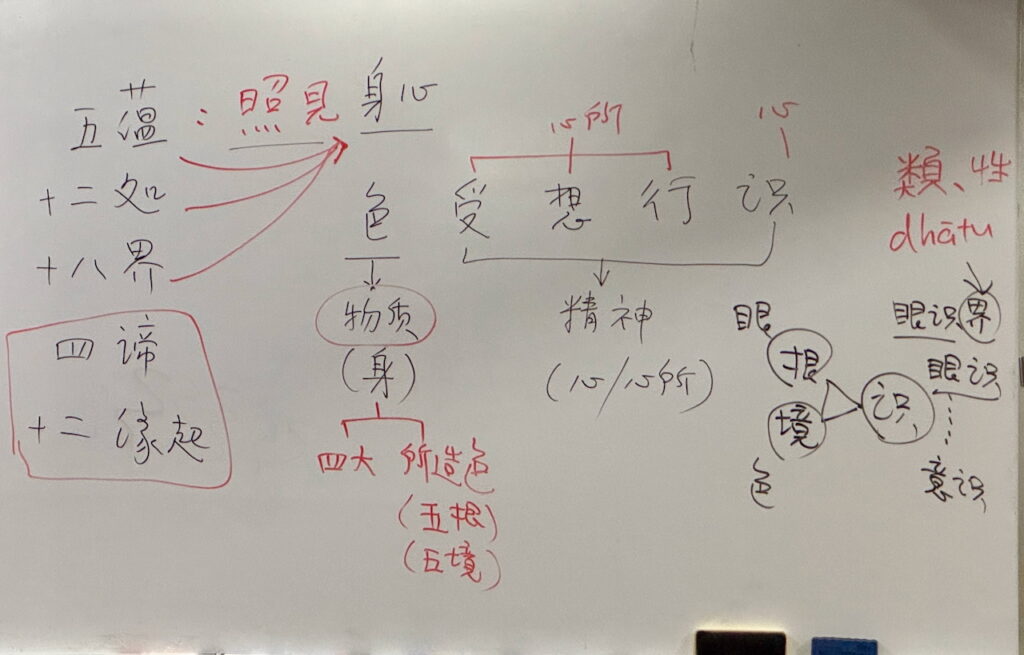 五蕴：照見 身心
十二処
十八界
四諦
十二缘起
心所
心
色 受 想 行 识
物质
(身)
四大 所造色
(五根)
(五境)
精神
(心/心所)
類、性
dhātu
眼识界
眼识
意识
眼
根
境
色
识